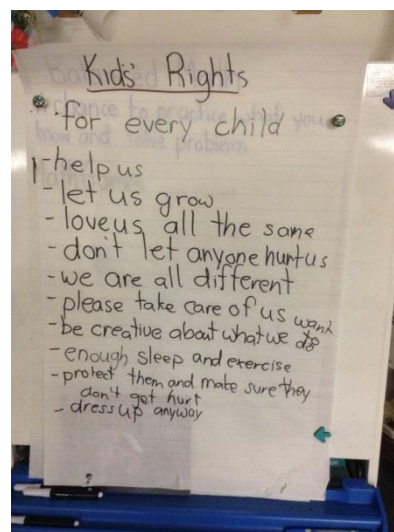 Kids' Rights
for every child
- help us
- let us grow
- love us all the same
- don't let anyone hurt us
- we are all different
- please take care of us
- be creative about what we want
to
- enough sleep and exercise
- protect them and make sure they
don't get hurt
- dress up anyway